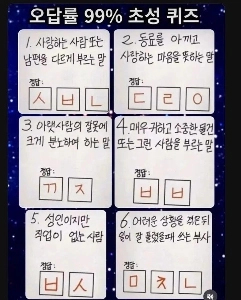 오답률 99% 초성 퀴즈
1. 사랑하는 사람 또는
남편을 다르게 부르는 말
정답:
ㅅ ㅂ ㄴ
2. 동료를 아끼고
사랑하는 마음을 뜻하는 말
정답:
ㄷ ㄹ ㅇ
3. 아랫사람의 잘못에
크게 분노하여 하는 말
정답:
ㄲ ㅈ
4. 매우 귀하고 소중한 물건
또는 그런 사람을 부르는 말
정답:
ㅂ ㅂ
5. 성인이지만
직업이 없는 사람
정답:
ㅂ ㅅ
6. 어려운 상황을 겪은 뒤
일이 잘 풀렸을 때 쓰는 부사
정답:
ㅁ ㅊ ㄴ